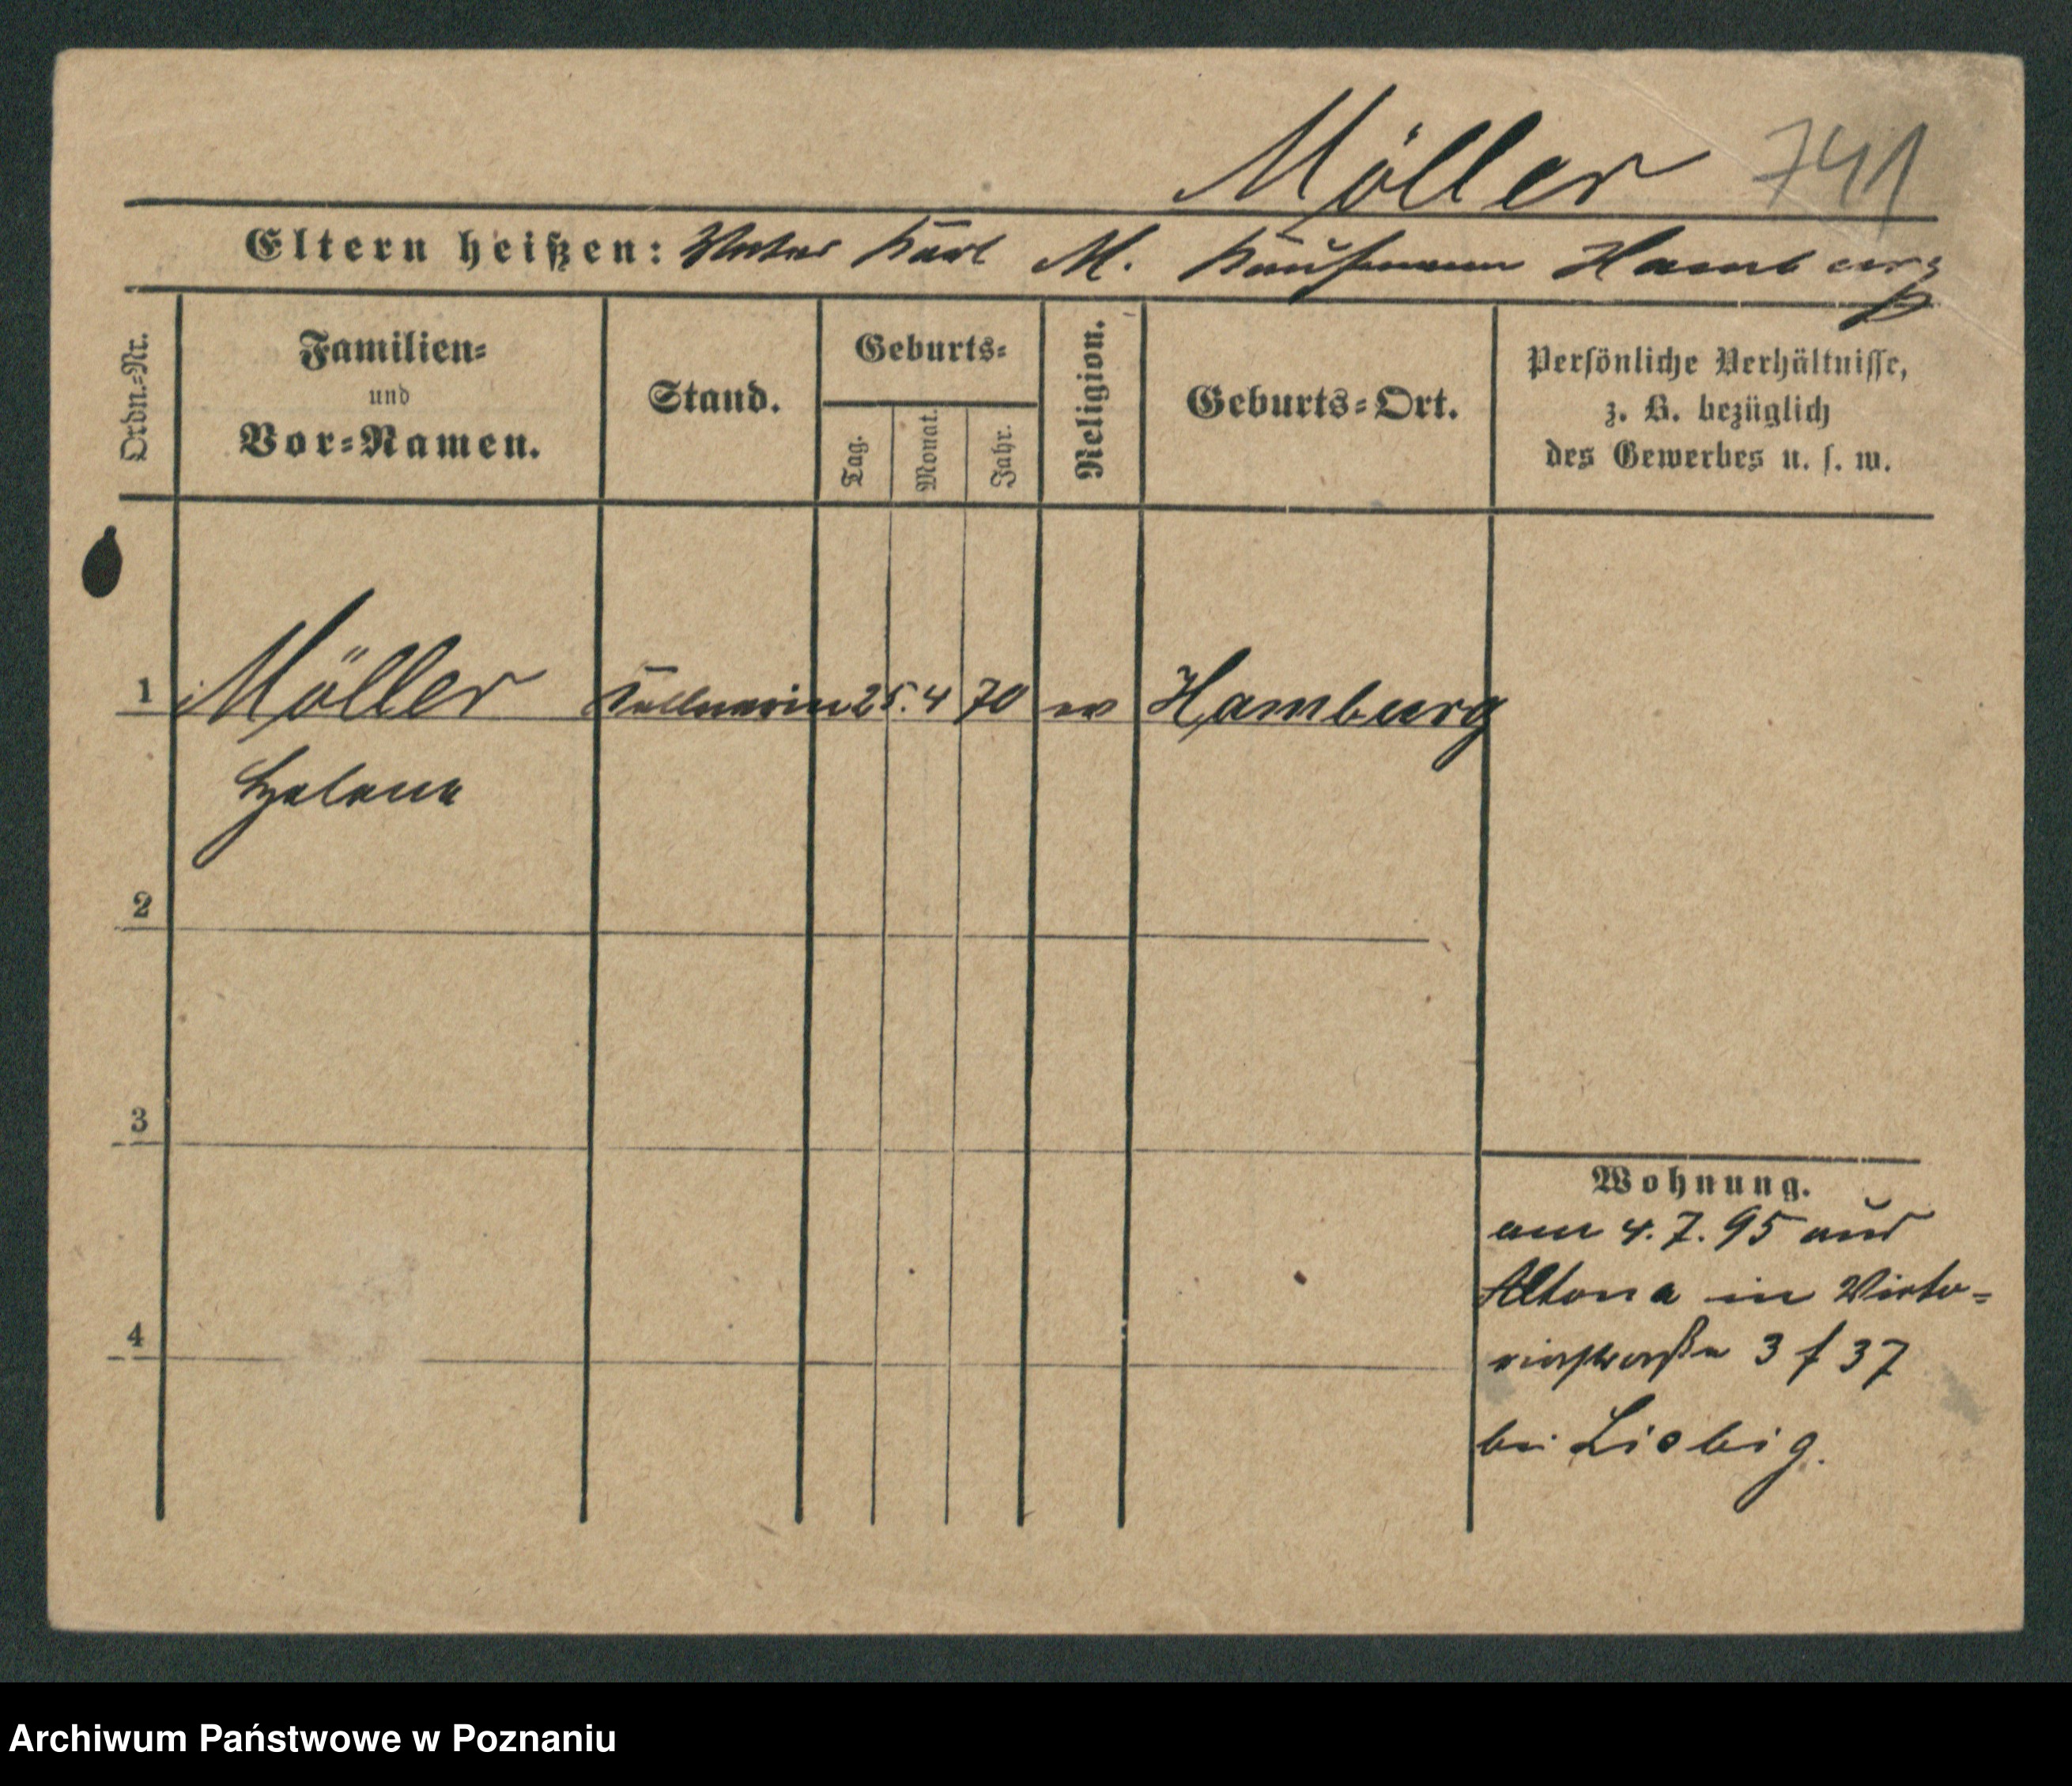 Möller 741
Eltern heißen: Vater Karl M. Kaufmann Hamburg
Ordn.-Nr.
Familien-
und
Vor-Namen.
Stand.
Geburts-
Tag.
Monat.
Jahr.
Religion.
Geburts-Ort.
Persönliche Verhältnisse,
z. B. bezüglich
des Gewerbes u. s. w.
1 Möller Kellnerin 25. 4 70 ev Hamburg
Helene
2
3
4
Wohnung.
am 4. 7. 95 aus
Altona in Victo-
riastraße 3 f 37
bei Liebig.
Archiwum Państwowe w Poznaniu